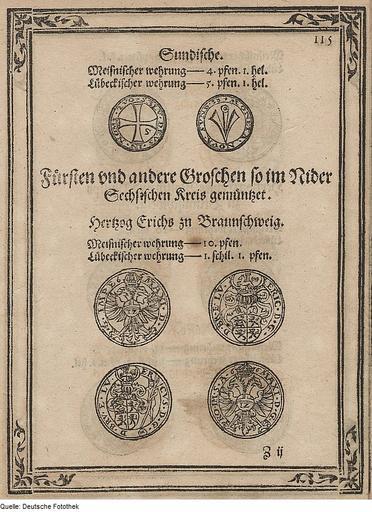 115
Sundische.
Meißnischer wehrung — 4. pfen. 1. hel.
Lübeckischer wehrung — 5. pfen. 1. hel.
Fürsten vnd andere Groschen so im Nider
Sechsischen Kreis gemüntzet.
Hertzog Erichs zu Braunschweig.
Meisnischer wehrung — 10. pfen.
Lübeckischer wehrung — 1. schil. 1. pfen.
Z ij
Quelle: Deutsche Fotothek